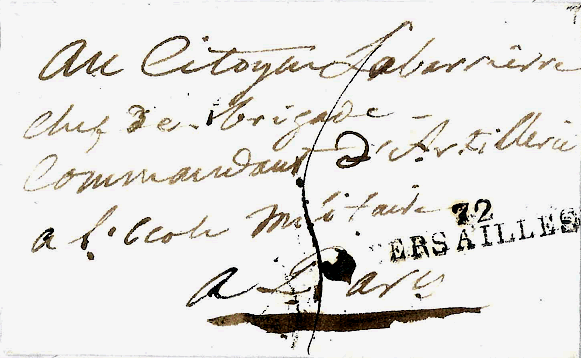 Au Citoyen Labarrière
chef de Brigade
Commandant d'Artillerie
a l'Ecole Militaire
72
VERSAILLES
a Paris